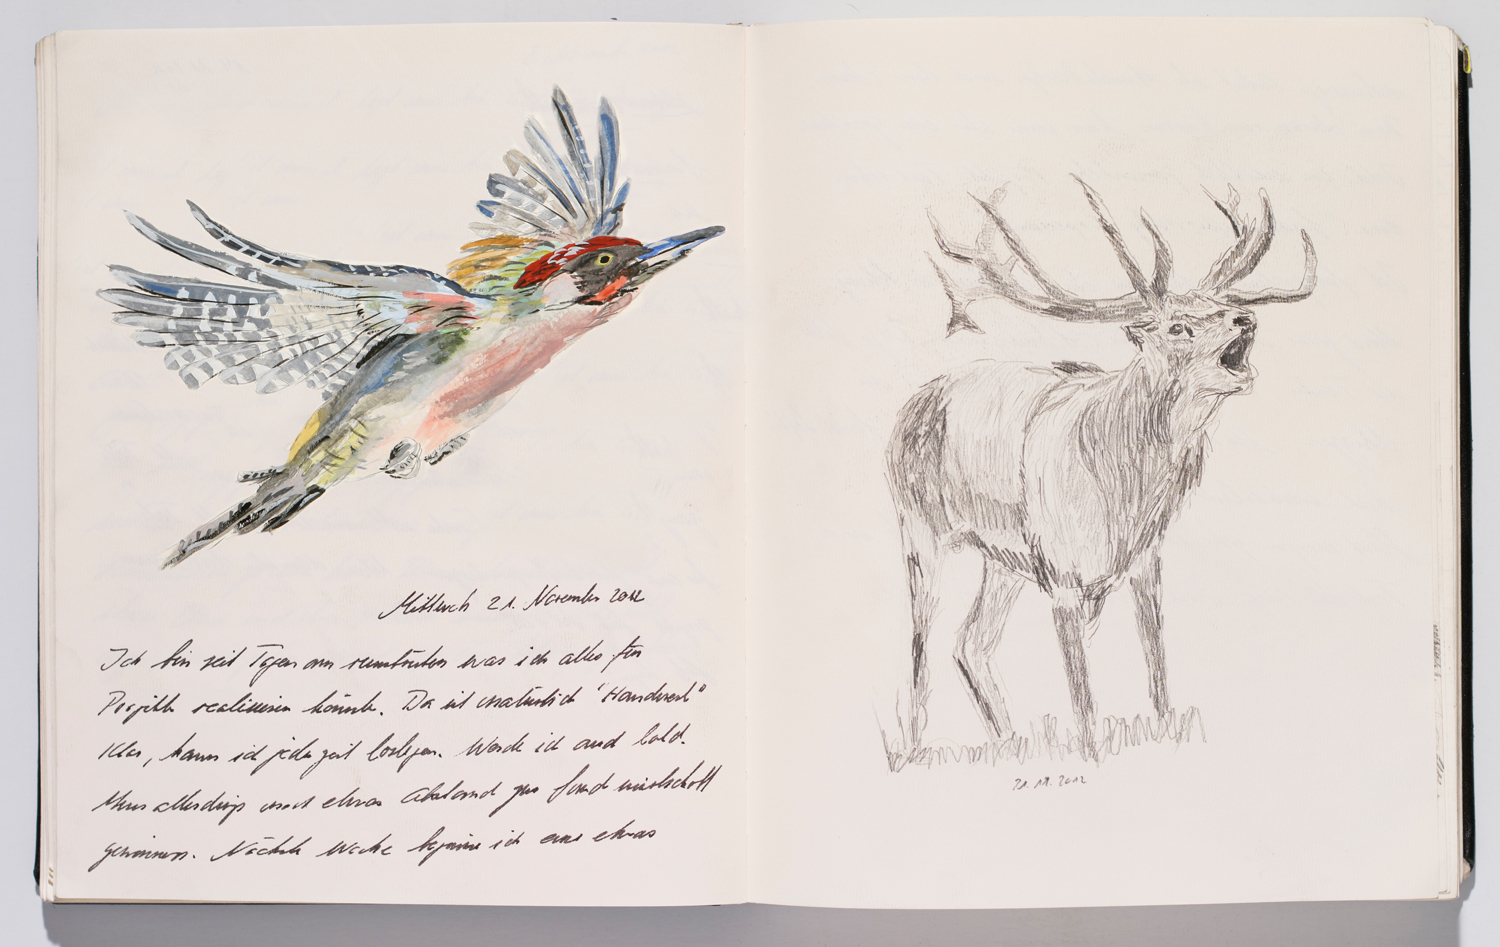 Mittwoch 21. November 2012
Ich bin seit Tagen am rumstudieren was ich alles für
Projekte realisieren könnte. Da ist natürlich "Handwerk"
Klar, kann ich jederzeit loslegen. Werde ich auch bald.
Muss allerdings noch etwas Abstand zur Landwirtschaft
gewinnen. Nächste Woche beginne ich eine etwas
21. 11. 2012